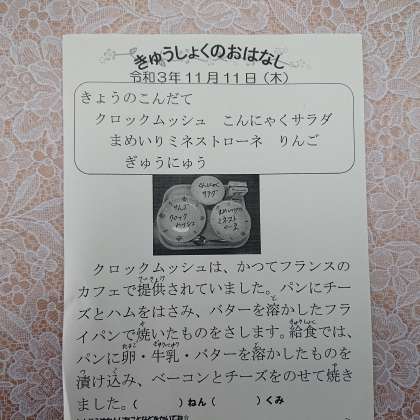 きゅうしょくのおはなし
令和3年11月11日(木)
きょうのこんだて
クロックムッシュ　こんにゃくサラダ
まめいりミネストローネ　りんご
ぎゅうにゅう
こんにゃく
サラダ
りんご
クロック
ムッシュ
まめいり
ミネスト
ローネ
クロックムッシュは、かつてフランスの
カフェで提供されていました。パンにチー
ズとハムをはさみ、バターを溶かしたフラ
イパンで焼いたものをさします。給食では、
パンに卵・牛乳・バターを溶かしたものを
漬け込み、ベーコンとチーズをのせて焼き
ました。(　　　)ねん(　　　)くみ